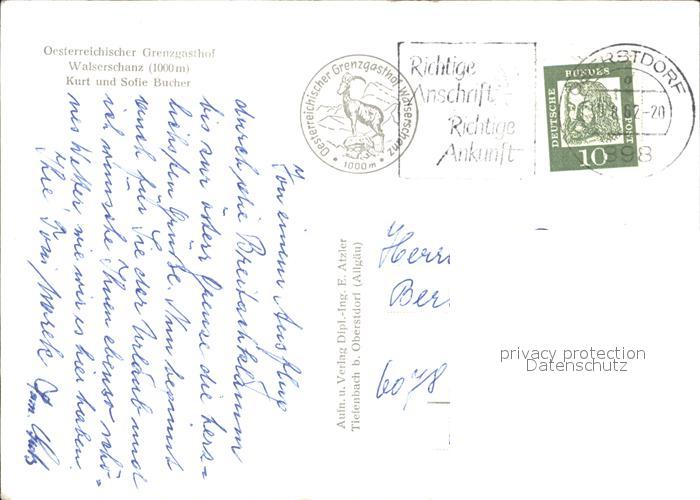 Oesterreichischer Grenzgasthof
Walserschanz (1000 m)
Kurt und Sofie Bucher
Oesterreichischer Grenzgasthof Walserschanz
• 1000 m •
Richtige
Anschrift
Richtige
Ankunft
OBERSTDORF
.8.62-20
898
DEUTSCHE
BUNDES
POST
10
Von einem Ausflug
durch die Breitachklamm
bis zur österr Grenze die herz=
lichsten Grüße. Nun beginnt
auch für Sie der Urlaub und
ich wünsche Ihnen ebenso schö=
nes Wetter wie wir es hier haben.
Ihre Toni
Aufn. u. Verlag Dipl.-Ing. E. Atzler
Tiefenbach b. Oberstdorf (Allgäu)
Herrn
Ber
6078
privacy protection
Datenschutz